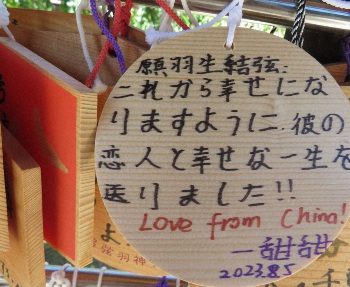 願羽生結弦.
これから幸せにな
りますように.彼の
恋人と幸せな一生を
送りました!!
Love from China!
一甜甜
2023.8.5
弦羽神